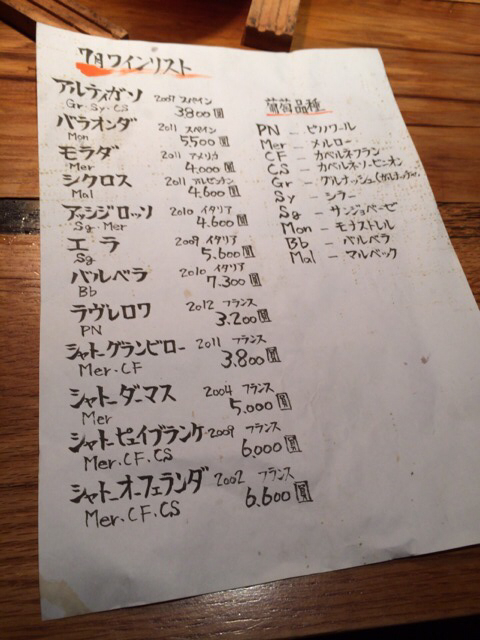 7月ワインリスト
アルティガソ 2007 スペイン
Gr・Sy・CS 3800圓
バラオンダ 2011 スペイン
Mon 5,500圓
モラダ 2011 アメリカ
Mer 4,000圓
シクロス 2011 アルゼンチン
Mal 4,600圓
アッシジロッソ 2010 イタリア
Sg・Mer 4,600圓
エラ 2009 イタリア
Sg 5,600圓
バルベラ 2010 イタリア
Bb 7,300圓
ラヴレロワ 2012 フランス
PN 3,200圓
シャトーグランビロー 2011 フランス
Mer・CF 3,800圓
シャトーダーマス 2004 フランス
Mer 5,000圓
シャトーピュイブランケ 2009 フランス
Mer.CF.CS 6,000圓
シャトーオーフェランダ 2002 フランス
Mer.CF.CS 6,600圓
葡萄品種
PN - ピノノワール
Mer - メルロー
CF - カベルネフラン
CS - カベルネソービニオン
Gr - グルナッシュ
Sy - シラー
Sg - サンジョベーゼ
Mon - モナストレル
Bb - バルベラ
Mal - マルベック